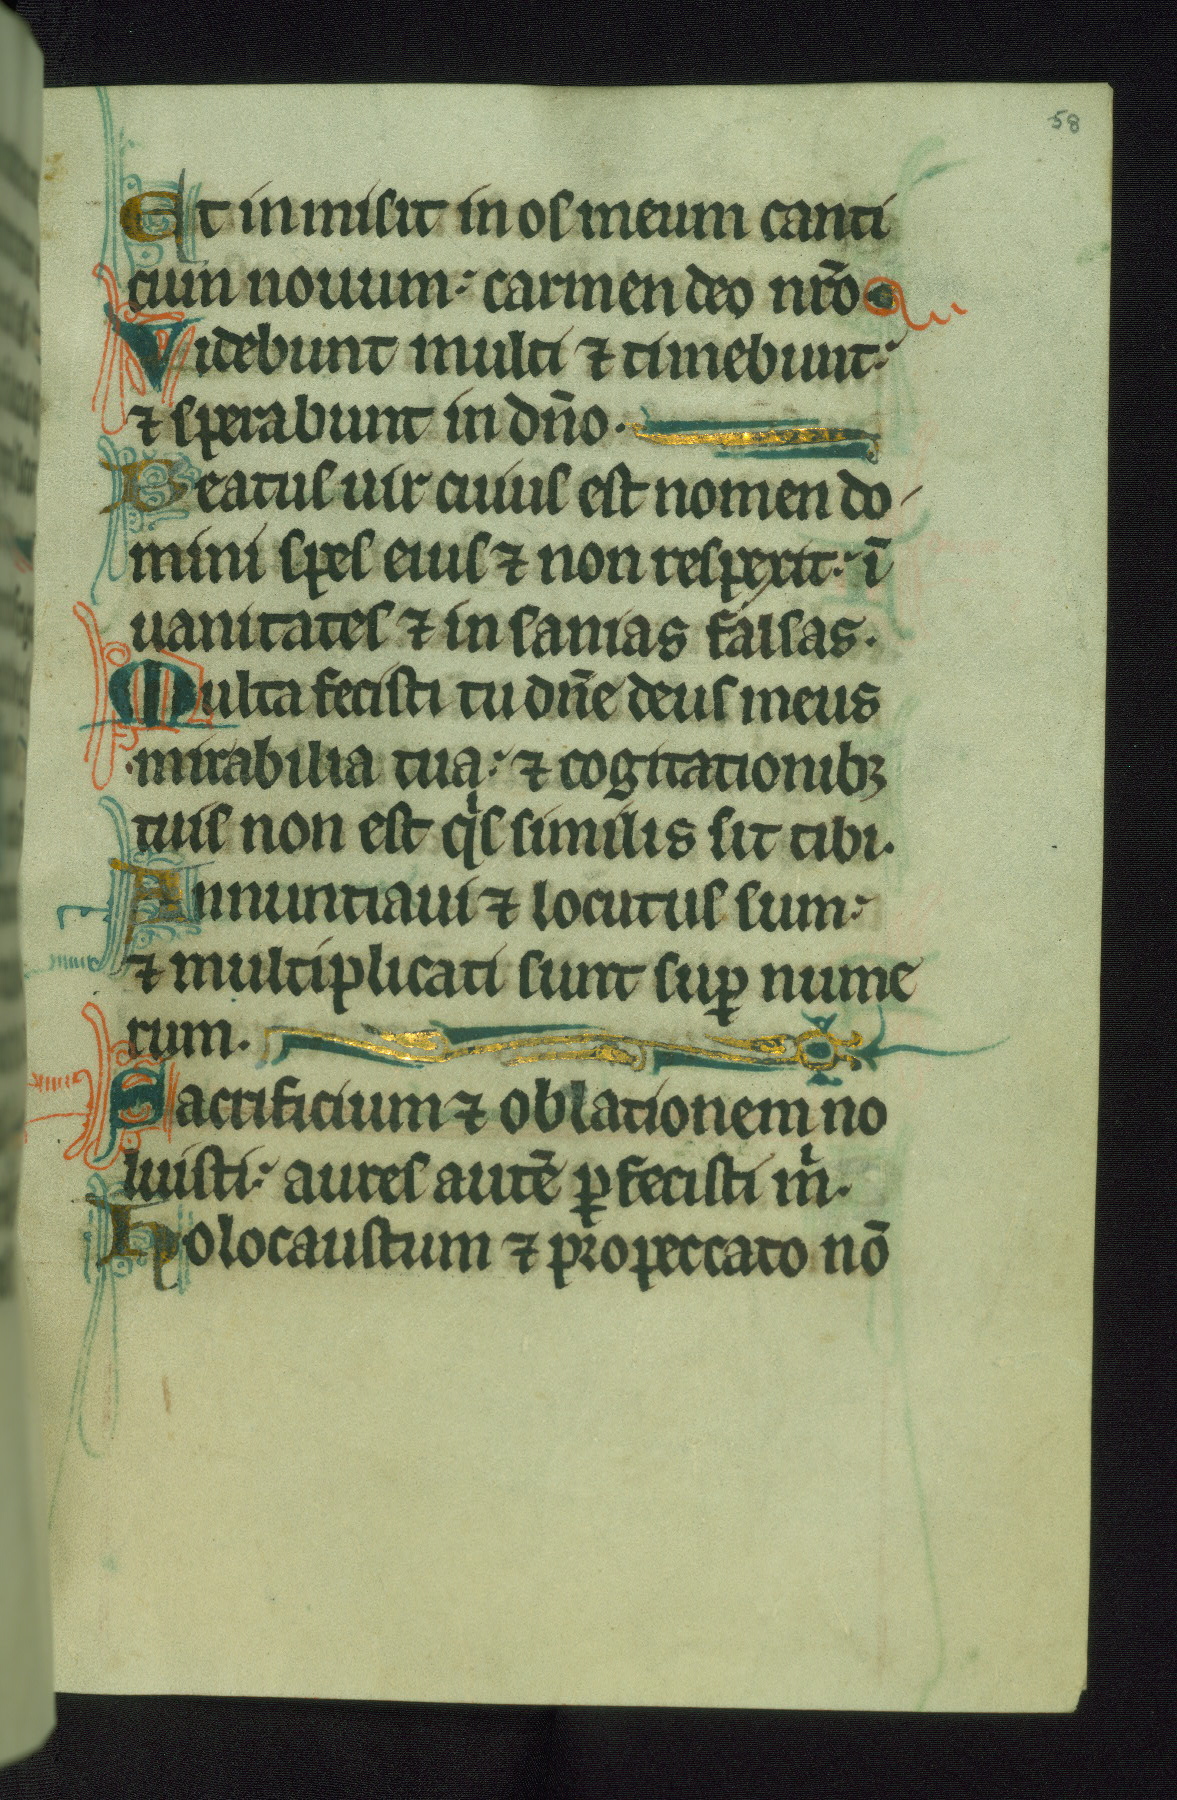 58
Et inmisit in os meum canti
cum nouum: carmen deo nr̄o
Videbunt multi ⁊ timebunt:
⁊ sperabunt in dn̄o.
Beatus uir cuius est nomen do-
mini spes eius ⁊ non respexit: ī
uanitates ⁊ insanias falsas.
Multa fecisti tu dn̄e deus meus
mirabilia tua: ⁊ cogitationibꝫ
tuis non est qͥs similis sit tibi.
Annuntiaui ⁊ locutus sum:
⁊ multiplicati sunt suꝑ nume
rum.
Sacrificium ⁊ oblationem no
luisti: aures autē ꝑfecisti mͥ.
Holocaustum ⁊ pro peccato nō